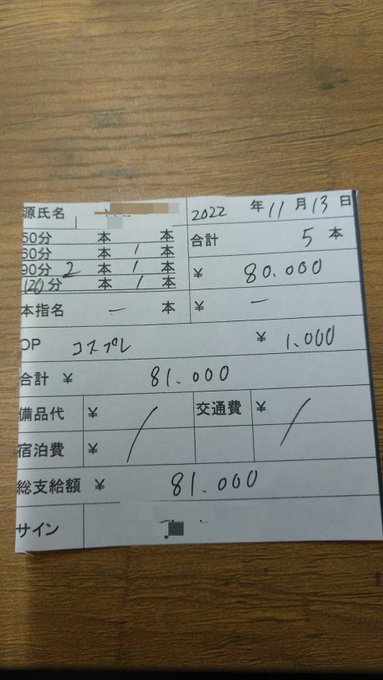 源氏名 2022 年 11 月 13 日
50分 本 本 合計 5 本
60分 本 1 本
90分 2 本 1 本 ¥ 80.000
120分 本 1 本
本指名 ー 本 ¥ ー
OP コスプレ ¥ 1,000
合計 ¥ 81.000
備品代 ¥ / 交通費 ¥ /
宿泊費 ¥
総支給額 ¥ 81.000
サイン